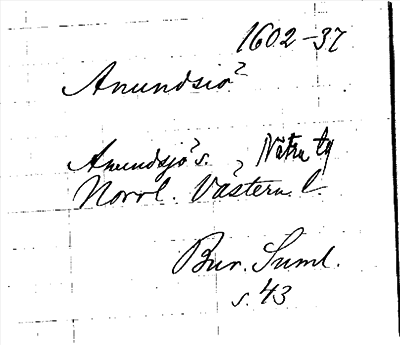 1602-37
Anundsiö
Anundsjö s. Nätra tg
Norrl. Västern. l.
Bur. Suml.
s. 43